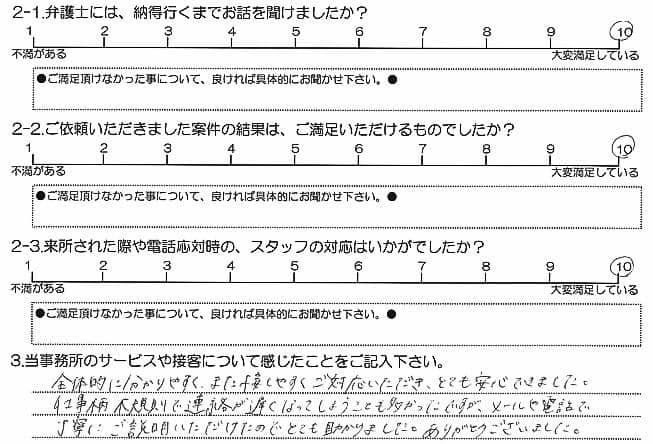 2-1.弁護士には、納得行くまでお話を聞けましたか？
1 2 3 4 5 6 7 8 9 10
不満がある 大変満足している
●ご満足頂けなかった事について、良ければ具体的にお聞かせ下さい。●
2-2.ご依頼いただきました案件の結果は、ご満足いただけるものでしたか？
1 2 3 4 5 6 7 8 9 10
不満がある 大変満足している
●ご満足頂けなかった事について、良ければ具体的にお聞かせ下さい。●
2-3.来所された際や電話応対時の、スタッフの対応はいかがでしたか？
1 2 3 4 5 6 7 8 9 10
不満がある 大変満足している
●ご満足頂けなかった事について、良ければ具体的にお聞かせ下さい。●
3.当事務所のサービスや接客について感じたことをご記入下さい。
全体的に分かりやすく、また接しやすくご対応いただき、とても安心できました。
仕事柄不規則で連絡が遅くなってしまうことも多かったですが、メールや電話で
丁寧にご説明いただけたのでとても助かりました。ありがとうございました。